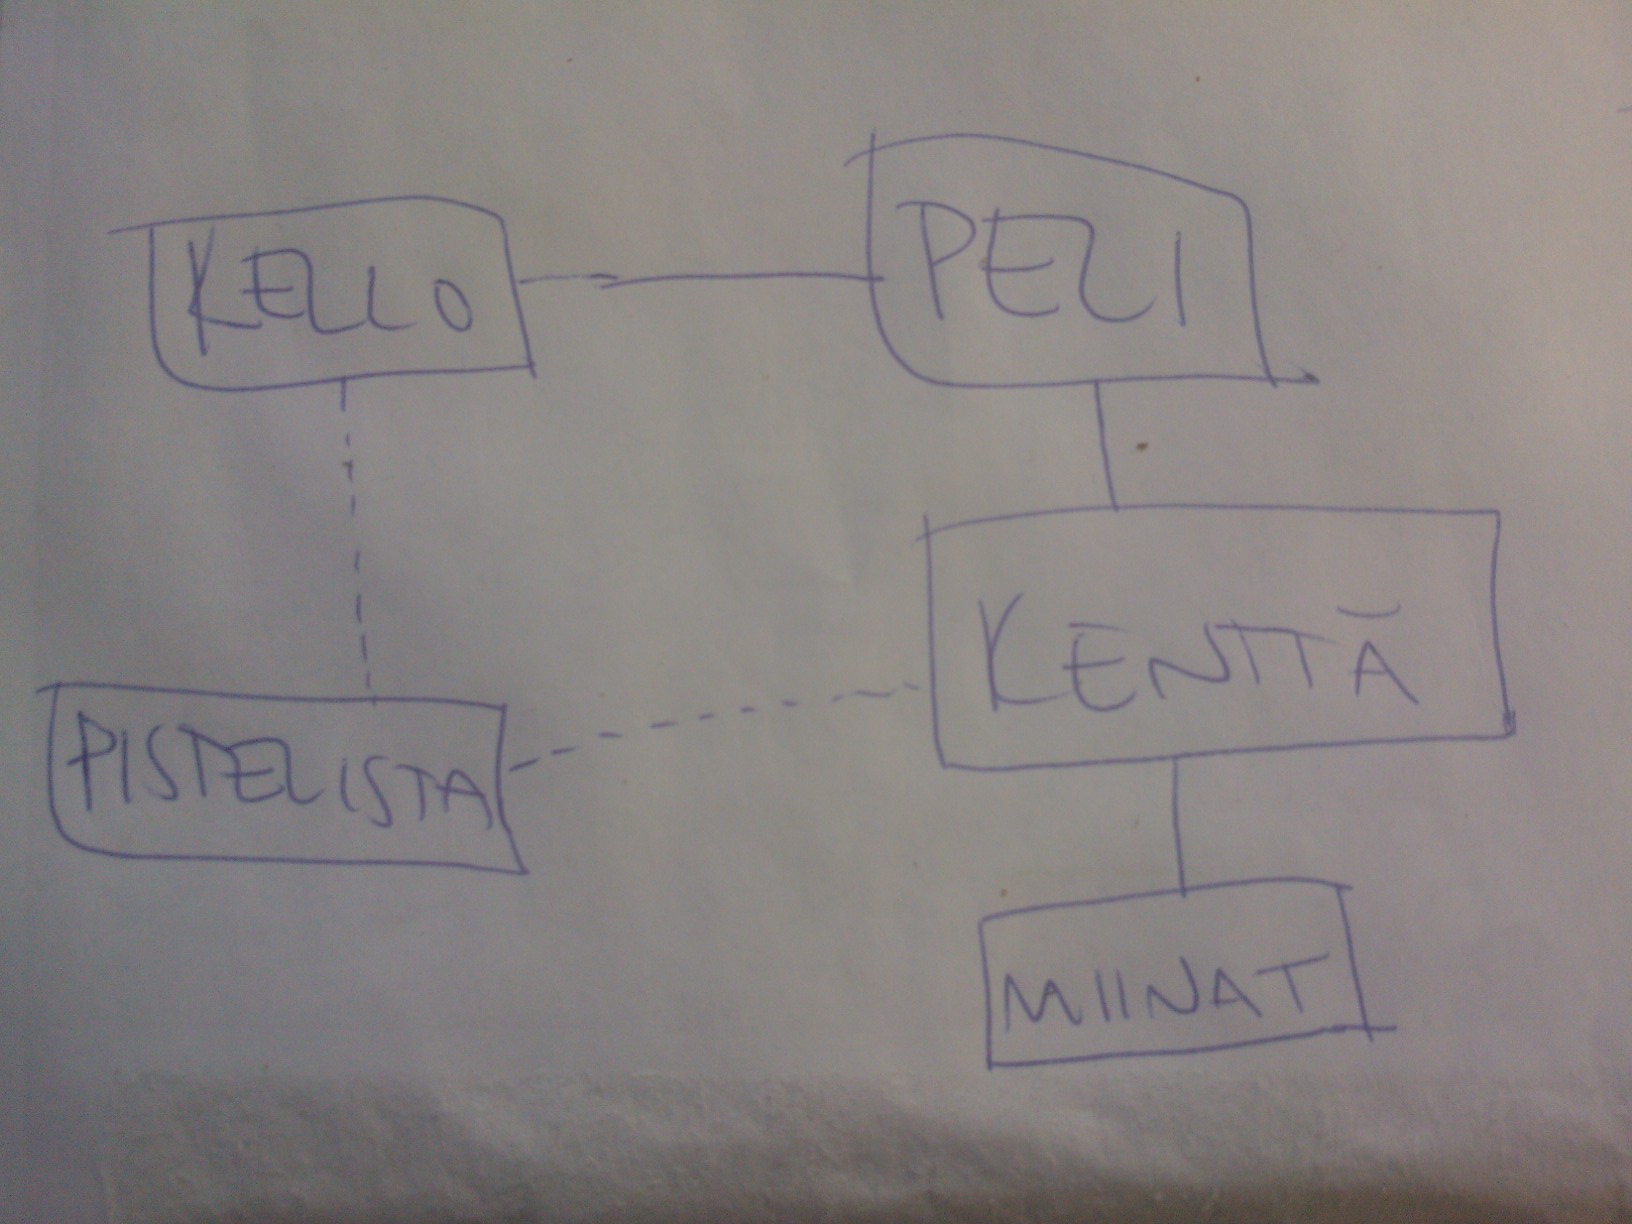 KELLO
PELI
KENTTÄ
PISTELISTA
MIINAT